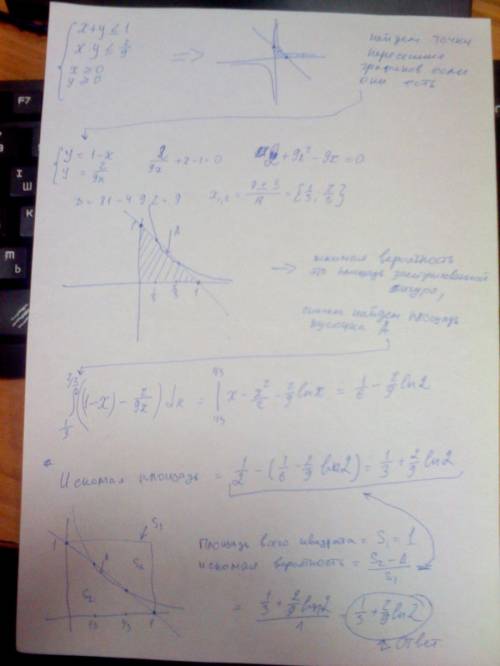 x+y ≤ 1
x·y ≤ 2/9
x ≥ 0
y ≥ 0
=>
найдем точки
пересечения
графиков если
они есть
y = 1-x
y = 2/9x
2/9x + x - 1 = 0
2 + 9x² - 9x = 0
D = 81 - 4·9·2 = 9
x₁,₂ =
= {1/3, 2/3}
1
A
1/3
2/3
1
искомая вероятность
это площадь заштрихованной
фигуры,
найдем площадь
кусочка A
∫ ((1-x) - 2/9x) dx = | x - x²/2 - 2/9 ln x = 1/6 - 2/9 ln2
2/3
1/3
Искомая площадь = 1/2 - (1/6 - 2/9 ln2) = 1/3 + 2/9 ln2
1
S₁
S₂
A
1/3
2/3
1
Площадь всего квадрата = S₁ = 1
искомая вероятность = S₂ - A / S₁ =
= 1/3 + 2/9 ln2 / 1 = 1/3 + 2/9 ln2
Ответ
F7
Ш
И
Ь
M